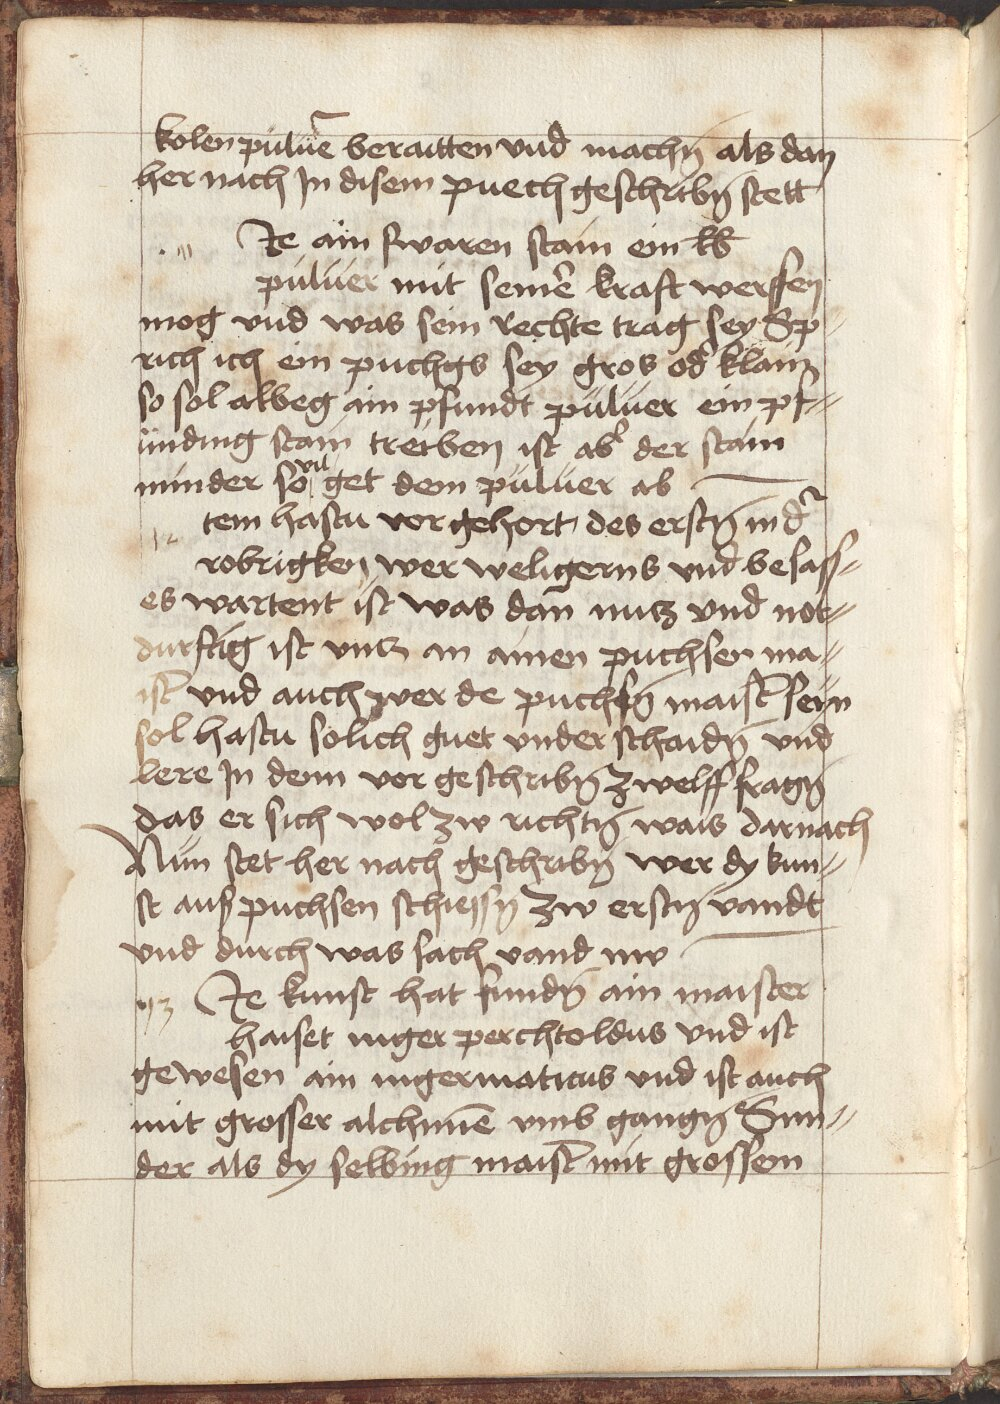 kolen pulūe beraitten vnd machn̄ als dan
her nach Jn disem puech geschribn̄ stett
Je ain swaren stain ein lb
puluer mit seinē kraft werffen
mog vnd was sein rechte trag sey Sp-
rich ich ein puchgs sey gros od' klain
so sol alweg ain pfundt puluer ein pf=
unding stain treiben ist ab' der stain
minder so vil get dem puluer ab
tem hastu vor gehort des erstn̄ in d'
robrigken wer weligerns vnd besäss=
es wartent ist was dan nutz vnd not=
durftig ist vntz an ainen puchsen ma=
ist' vnd auch wer de puchsn̄ maist' sein
sol hastu solich guet vnderschaidn̄ vnd
lere Jn denn vor geschribn̄ zwelff fragn̄
das er sich wol zw richtn̄ wais darnach
Nun stet her nach geschribn̄ wer dy kun=
st aus puchsen schiessn̄ zw erstn̄ vandt
vnd durch was sach vand inn
13 Je kunst hat fundn̄ ain maister
haiset niger perchtoldus vnd ist
gewesen ain nigermaticus vnd ist auch
mit grosser alchimē vmb gangn̄ Sun=
der als dy selbing maist' mit grossem